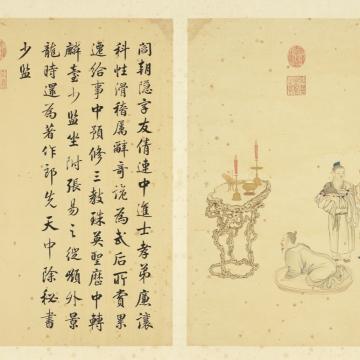 閻朝隱字友倩連中進士孝弟廉讓
科性滑稽属辭奇詭為武后所賞累
遷給事中預修三教珠英聖曆中轉
麟臺少監坐附張易之徙嶺外景
龍時還為著作郎先天中除秘書
少監